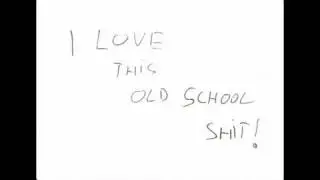 I LOVE
THIS
OLD SCHOOL
SHIT!